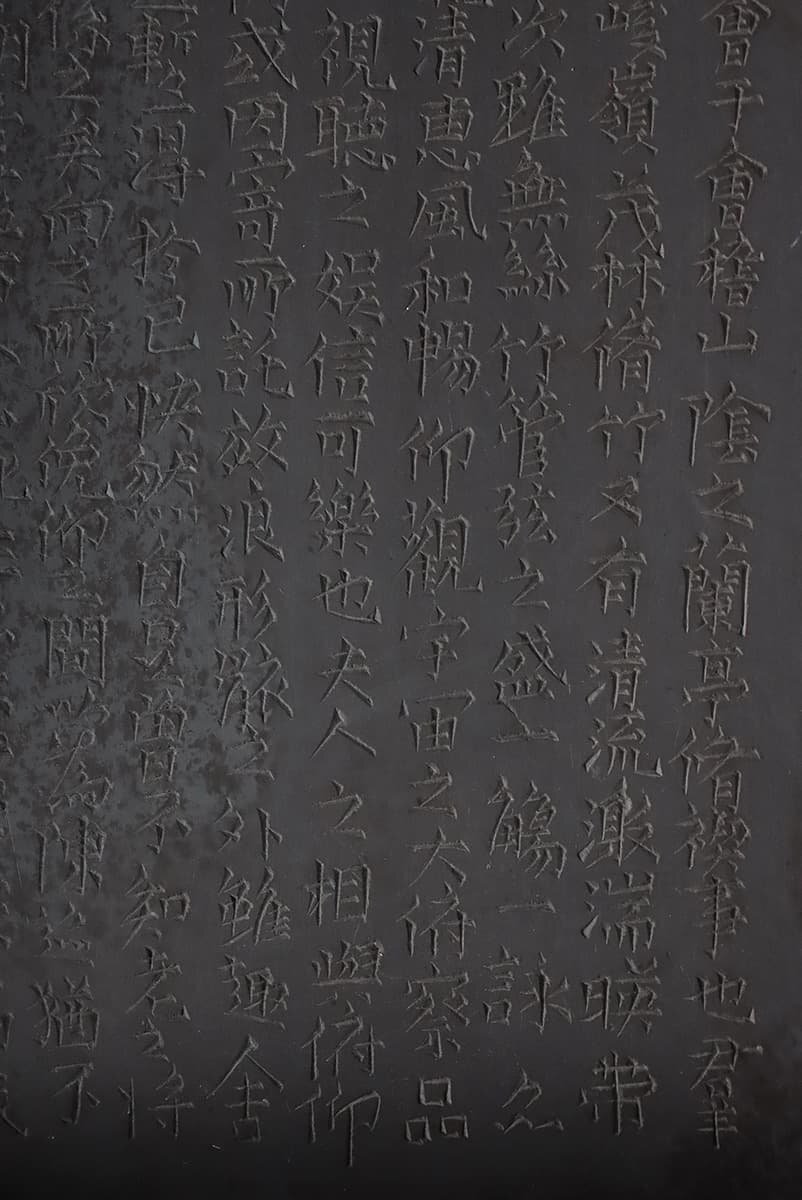 會于會稽山陰之蘭亭脩禊事也羣
嶺茂林脩竹又有清流激湍暎帶
次雖無絲竹管弦之盛一觴一詠之
清惠風和暢仰觀宇宙之大俯察品
視聽之娛信可樂也夫人之相與俯仰
或因寄所託放浪形骸之外雖趣舍
暫得於己快然自足曾不知老之將
係之矣向之所欣俛仰之間以為陳迹猶不